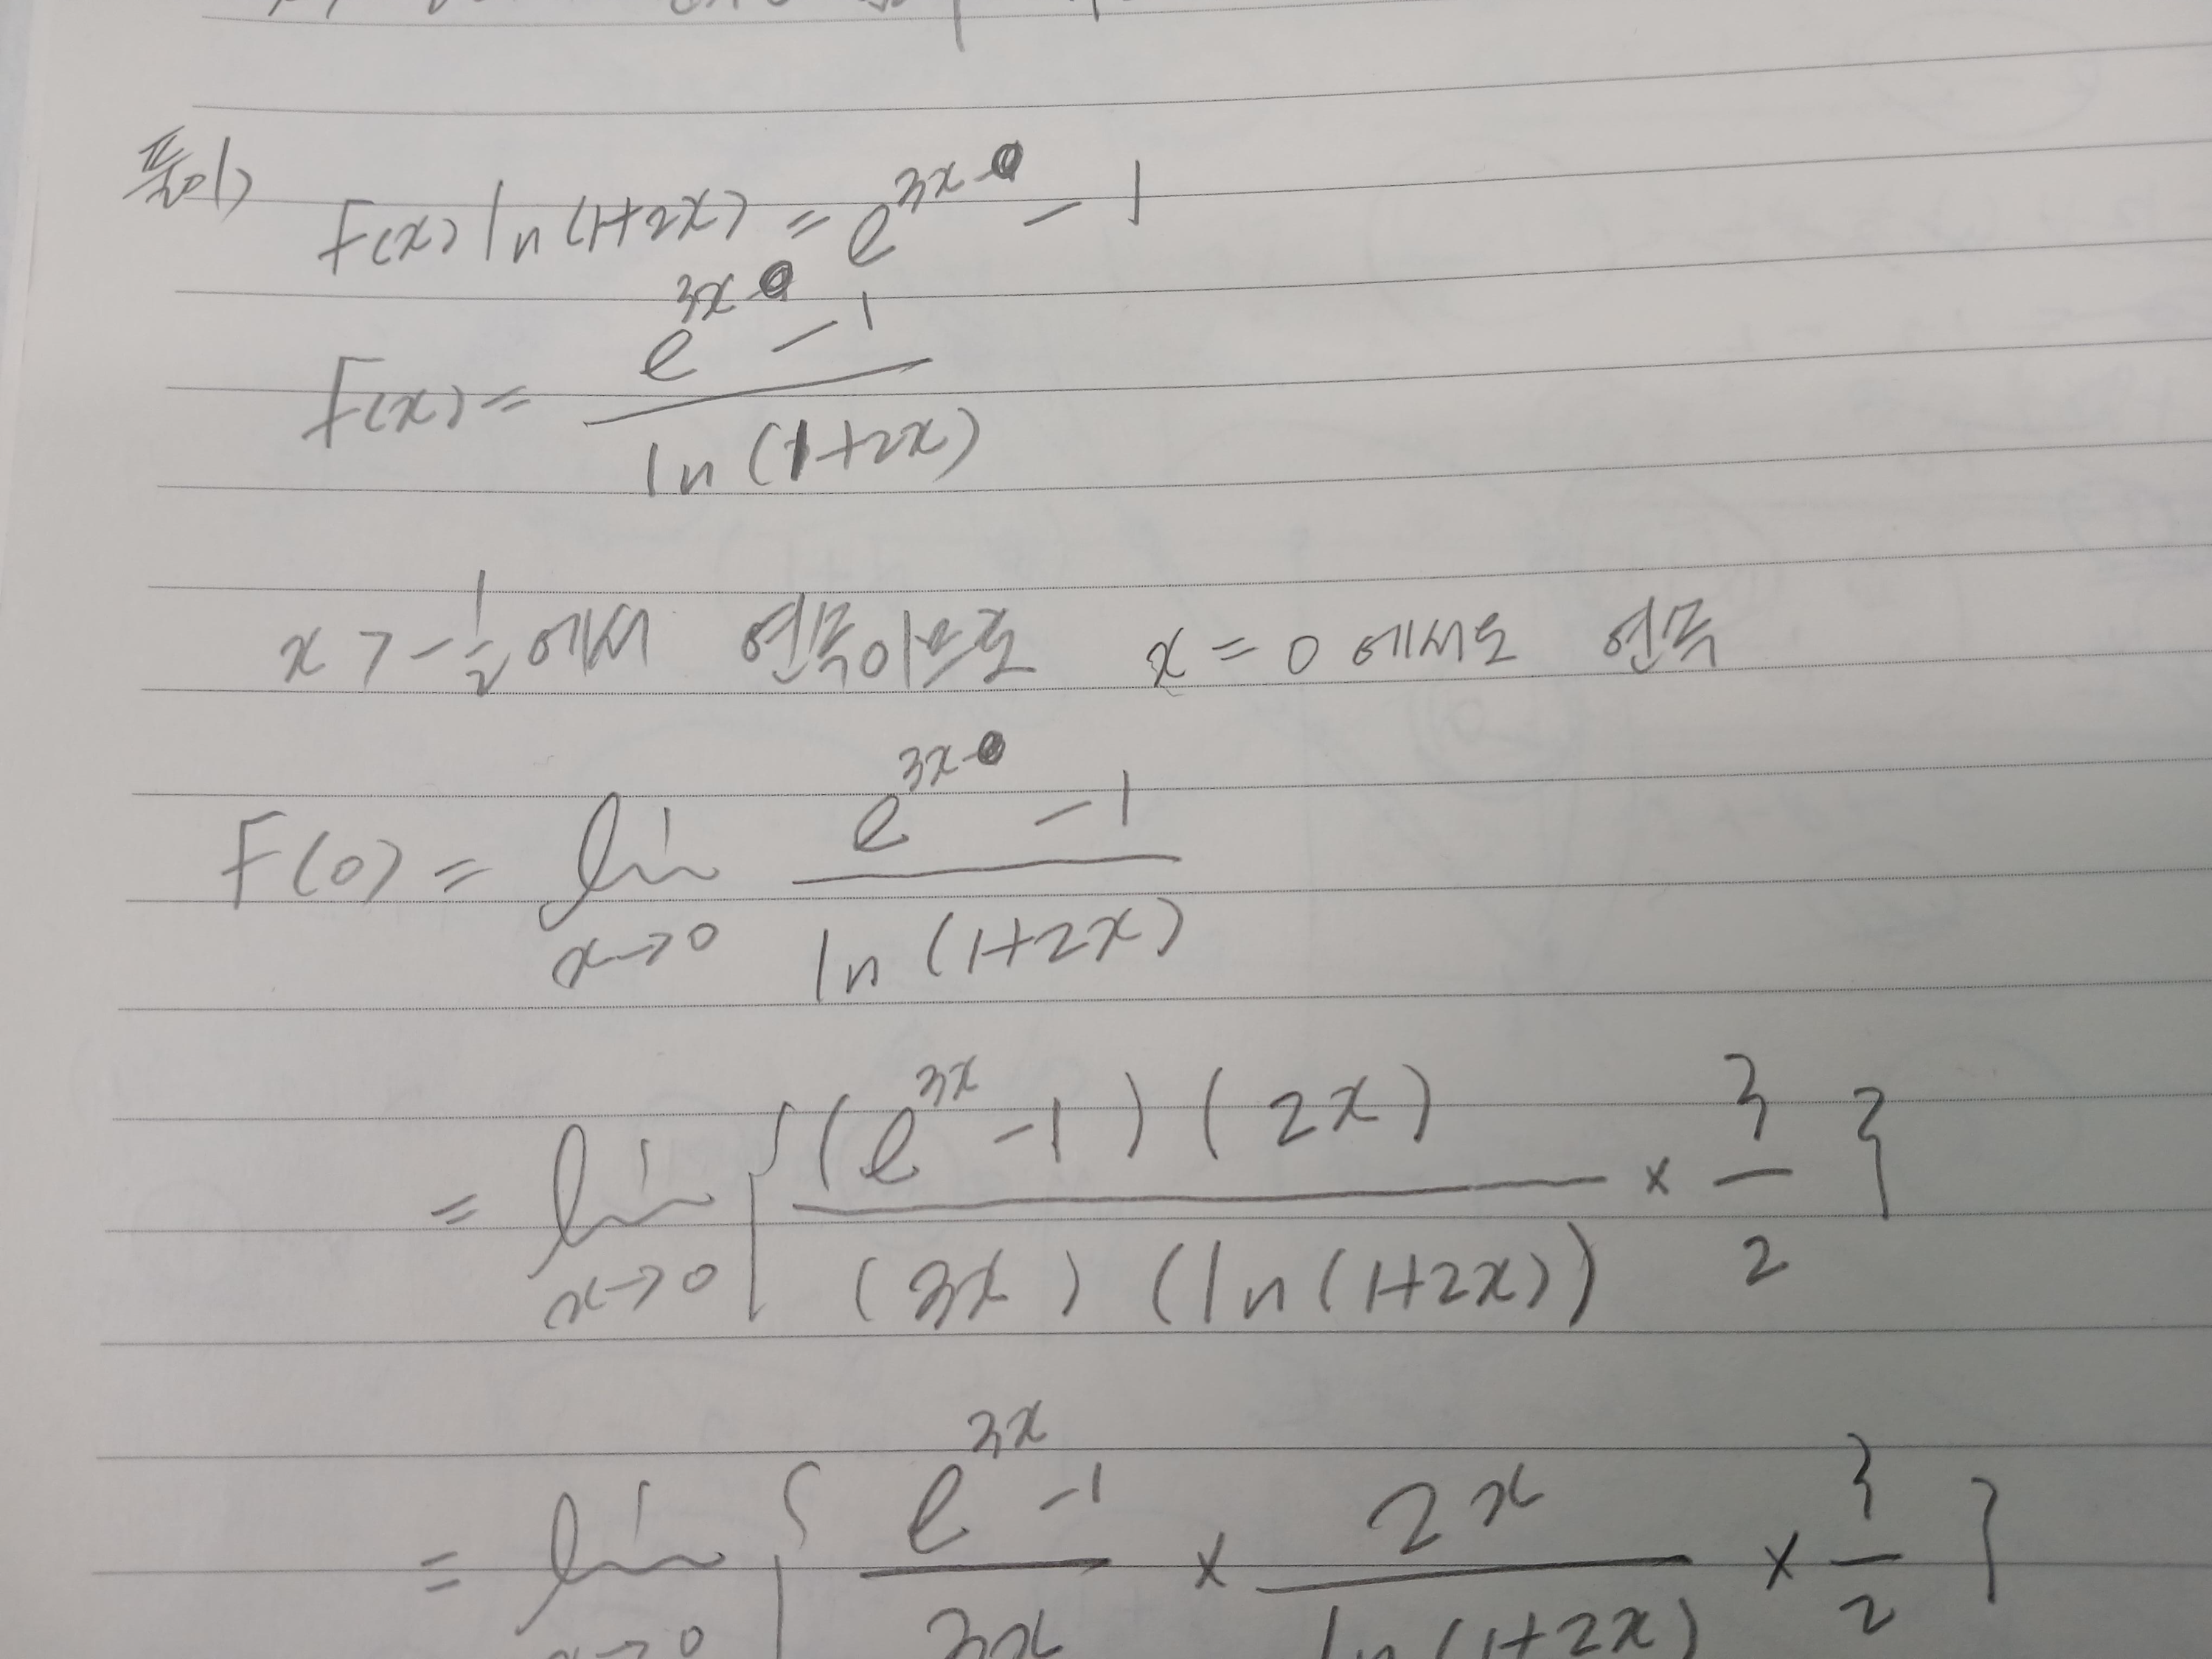 풀이)
F(x) ln(1+2x) = e^{3x} - 1
F(x) = \frac{e^{3x} - 1}{ln(1+2x)}
x > -\frac{1}{2} 에서 연속이므로 x = 0 에서도 연속
F(0) = \lim_{x→0} \frac{e^{3x} - 1}{ln(1+2x)}
= \lim_{x→0} { \frac{(e^{3x} - 1)(2x)}{(3x)(ln(1+2x))} × \frac{3}{2} }
= \lim_{x→0} { \frac{e^{3x} - 1}{3x} × \frac{2x}{ln(1+2x)} × \frac{3}{2} }